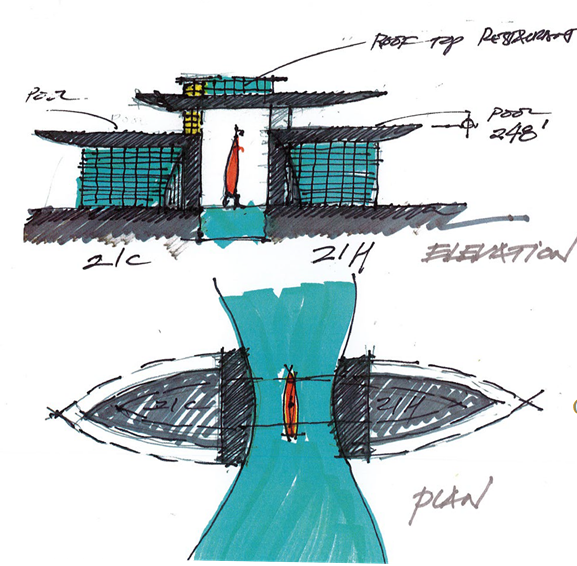 ROOF TOP RESTAURANT
POOL
POOL
248'
21C
21H
ELEVATION
21C
21H
PLAN